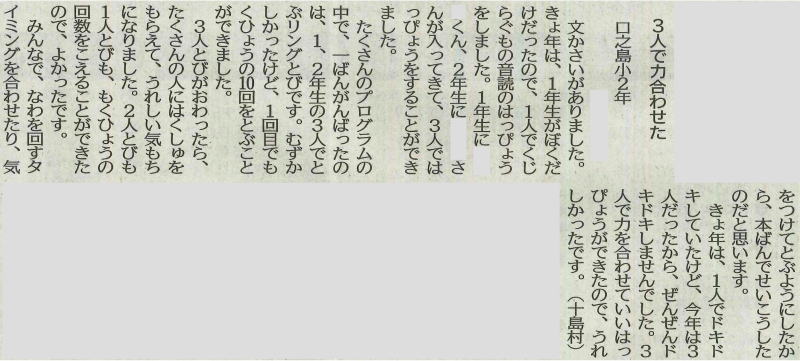 ３人で力合わせた
口之島小２年
文かさいがありました。
きょ年は、１年生がぼくだ
けだったので、１人でくじ
らぐもの音読のはっぴょう
をしました。１年生に
くん、２年生に　　さ
んが入ってきて、３人では
っぴょうをすることができ
ました。
たくさんのプログラムの
中で、一ばんがんばったの
は、１、２年生の３人でと
ぶリングとびです。むずか
しかったけど、１回目でも
くひょうの10回をとぶこと
ができました。
３人とびがおわったら、
たくさんの人にはくしゅを
もらえて、うれしい気もち
になりました。２人とびも
１人とびも、もくひょうの
回数をこえることができた
ので、よかったです。
みんなで、なわを回すタ
イミングを合わせたり、気
をつけてとぶようにしたか
ら、本ばんでせいこうした
のだと思います。
きょ年は、１人でドキド
キしていたけど、今年は３
人だったから、ぜんぜんド
キドキしませんでした。３
人で力を合わせていいはっ
ぴょうができたので、うれ
しかったです。（十島村）